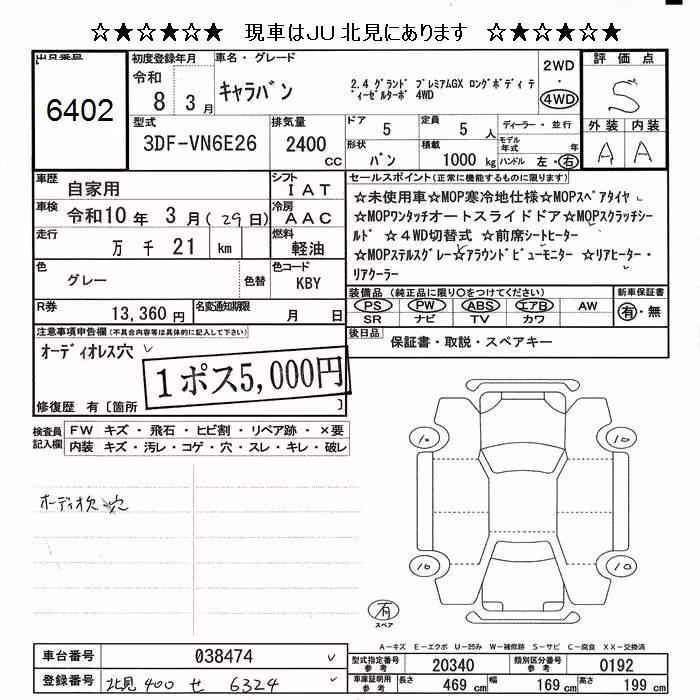 ☆★☆★☆★ 現車はJU北見にあります ☆★☆★☆★
出品番号
6402
初度登録年月
令和
8 3 月
車名・グレード
キャラバン
2.4 グランド プレミアムGX ロングボディ デ
ィーゼルターボ 4WD
2WD
・
4WD
評価点
S
外装 内装
A A
型式
3DF-VN6E26
排気量
2400
cc
ドア 5
定員 5 人
ディーラー・並行
モデル年式 年
形状 バン
積載 1000 kg
ハンドル 左・右
車歴 自家用
シフト IAT
セールスポイント(正常に機能するものに限ります)
☆未使用車☆MOP寒冷地仕様☆MOPスペアタイヤ
☆MOPワンタッチオートスライドドア☆MOPスクラッチシー
ルド ☆4WD切替式 ☆前席シートヒーター
☆MOPステルスグレー☆アラウンドビューモニター ☆リアヒーター・
リアクーラー
車検 令和10 年 3 月 (29日)
冷房 AAC
走行 万 千 21 km
燃料 軽油
色 グレー 色替
色コード KBY
R券 13,360 円
名変通知期限 月 日
装備品(純正品に限り○をつけてください)
PS PW ABS エアB AW
SR ナビ TV カワ
新車保証書
有・無
後日品 保証書・取説・スペアキー
注意事項申告欄(不具合内容等は具体的に記入して下さい)
オーディオレス穴
1ポス5,000円
修復歴 有〔箇所 〕
検査員記入欄
FW キズ・飛石・ヒビ割・リペア跡・×要
内装 キズ・汚レ・コゲ・穴・スレ・キレ・破レ
オーディオ欠 穴
10 10
10 10
有
スペア
A-キズ E-エクボ U-凹み W-補修跡 S-サビ C-腐食 XX-交換済
車台番号 038474
型式指定番号 参考 20340
類別区分番号 参考 0192
登録番号 北見 400 せ 6324
車庫証明用 参考 長さ 469 cm 幅 169 cm 高さ 199 cm